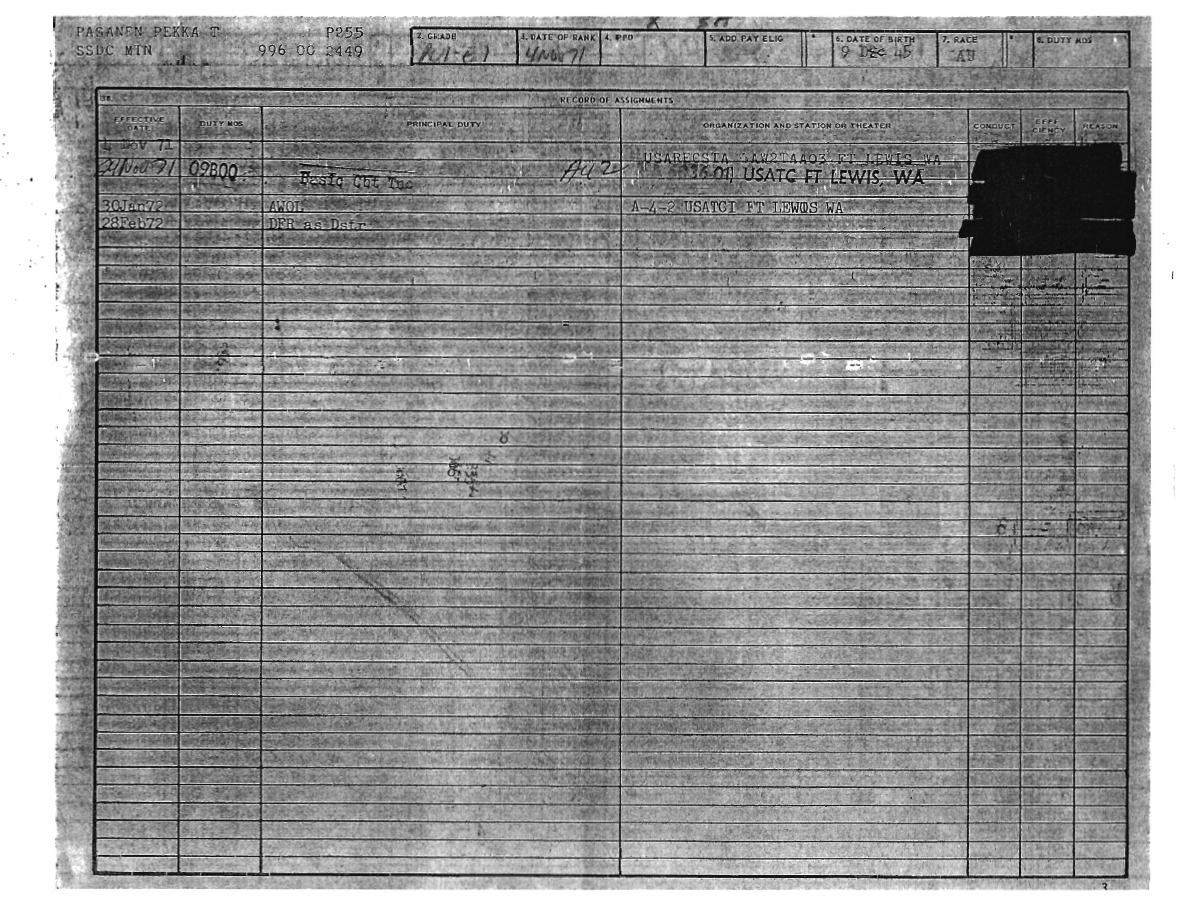 PASANEN PEKKA T P255
SSDC MTN 996 00 2449
2. GRADE
3. DATE OF RANK
4Nov71
4. PPD
5. ADD PAY ELIG
6. DATE OF BIRTH
9 Dec 45
7. RACE
8. DUTY MOS
RECORD OF ASSIGNMENTS
EFFECTIVE DATE DUTY MOS PRINCIPAL DUTY ORGANIZATION AND STATION OR THEATER CONDUCT EFFICIENCY REASON
Nov 71 USARECSTA FT LEWIS WA
Nov 71 09B00 Basic Cbt USATC FT LEWIS, WA
30Jan72 AWOL A-4-2 USATCI FT LEWIS WA
28Feb72 DFR as Dstr
3